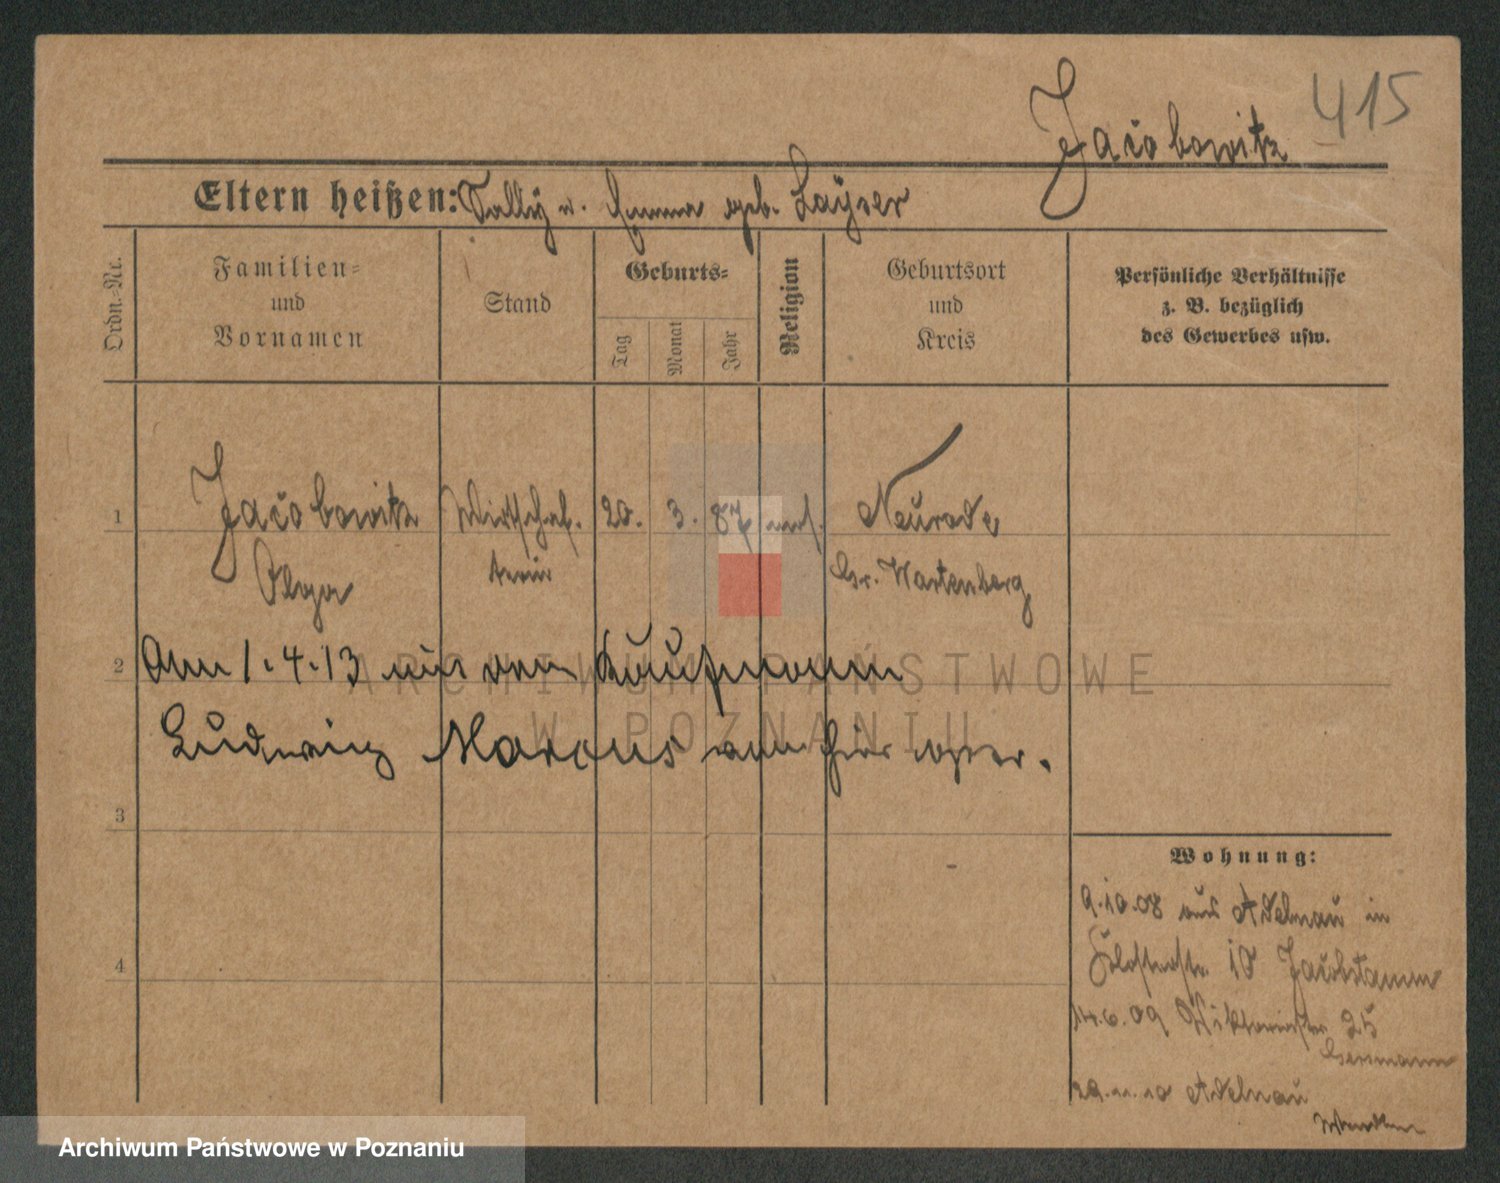 415
Jacobowitz
Eltern heißen: Sally u. Emma geb. Layser
Ordn.-Nr.
Familien-
und
Vornamen
Stand
Geburts-
Tag
Monat
Jahr
Religion
Geburtsort
und
Kreis
Persönliche Verhältnisse
z. B. bezüglich
des Gewerbes usw.
1
Jacobowitz Wirtschaf. 20. 3. 87 mos. Neurode
Olga terin Gr. Wartenberg
2
Am 1.4.13 mit dem Kaufmann
ARCHIWUM PAŃSTWOWE
W POZNANIU
Ludwig Marcus von hier
3
4
Wohnung:
9.10.08 aus Adelnau in
10 Jacobstamm
14.6.09 Viktoriastr. 25
29.11.10 Adelnau
Archiwum Państwowe w Poznaniu